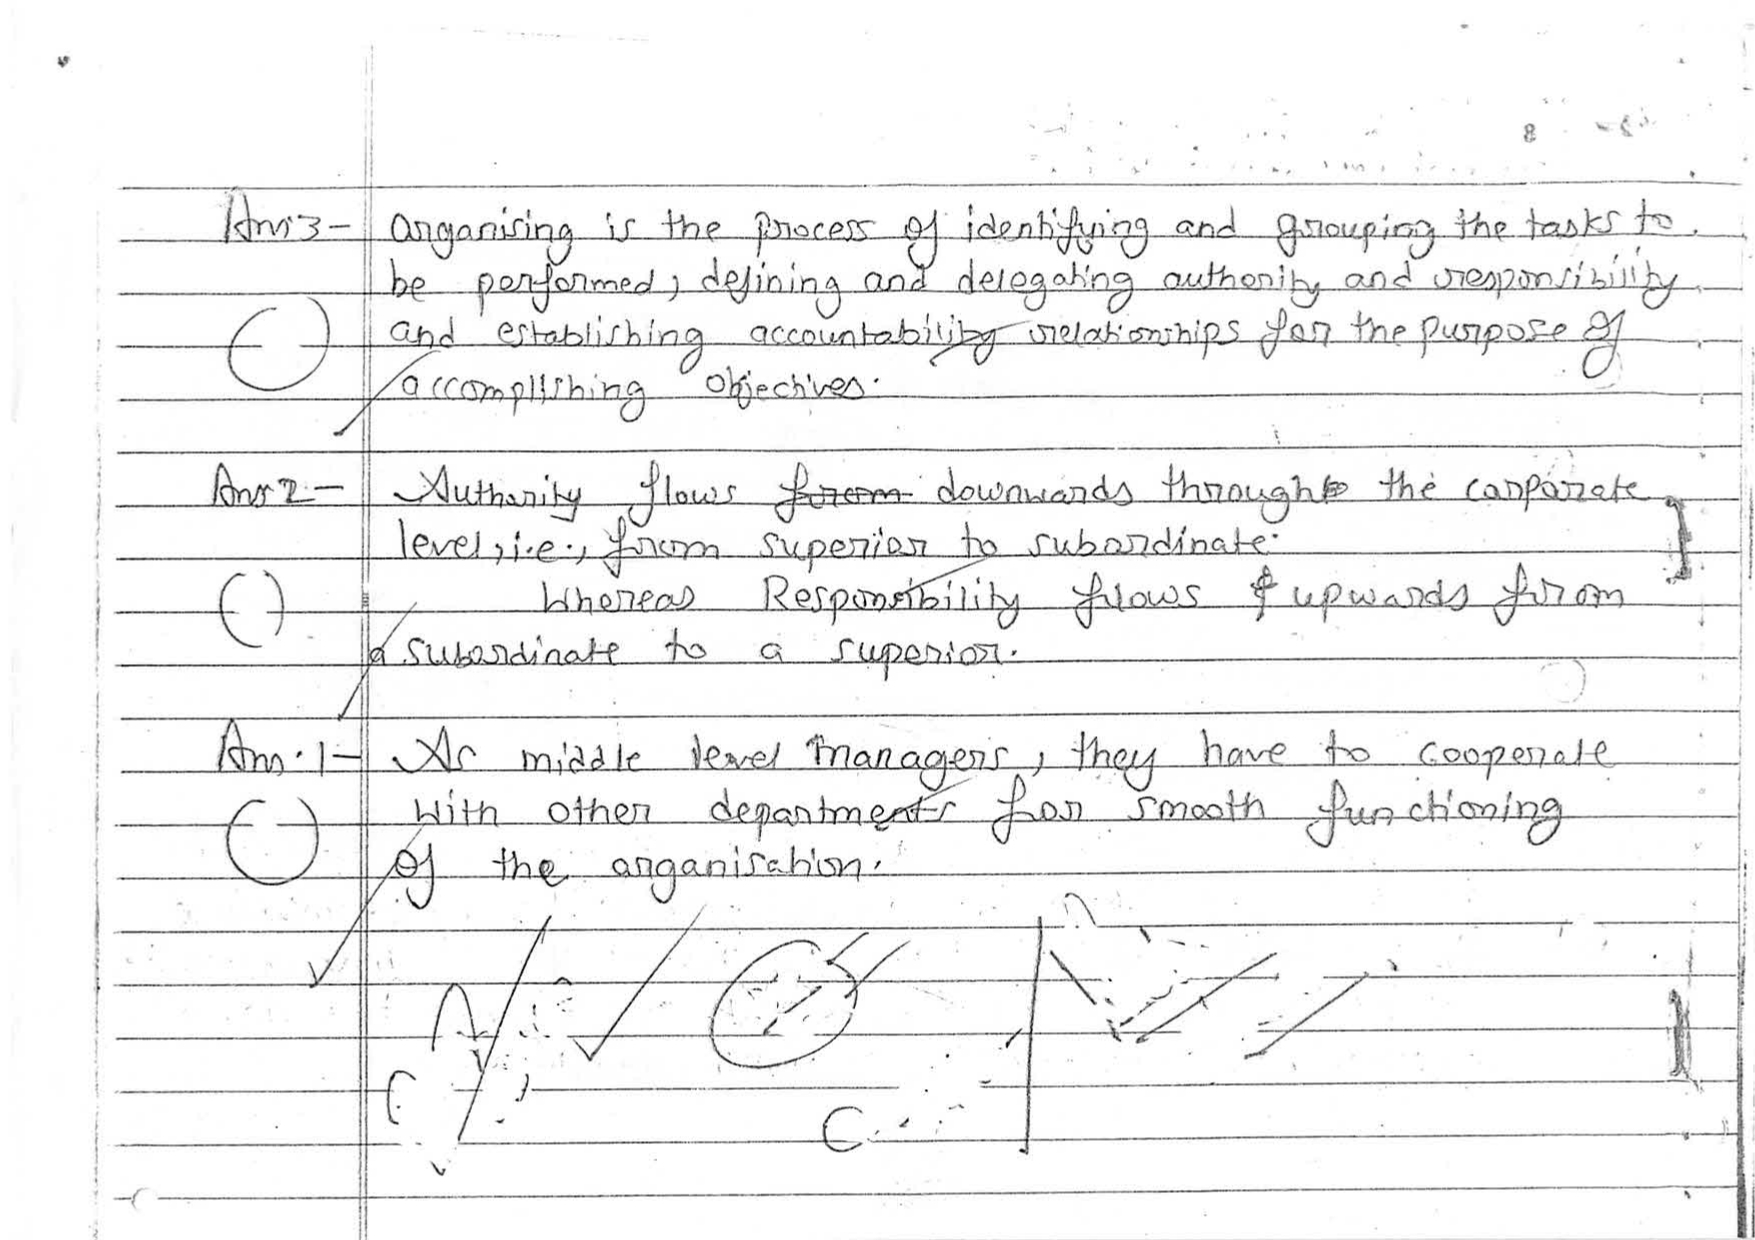 Ans 3- Organising is the process of identifying and grouping the tasks to
be performed, defining and delegating authority and responsibility
and establishing accountability relationships for the purpose of
accomplishing objectives.
Ans 2- Authority flows from downwards through the corporate
level, i.e., from superior to subordinate.
Whereas Responsibility flows upwards from
a subordinate to a superior.
Ans. 1- As middle level managers, they have to cooperate
with other departments for smooth functioning
of the organisation.